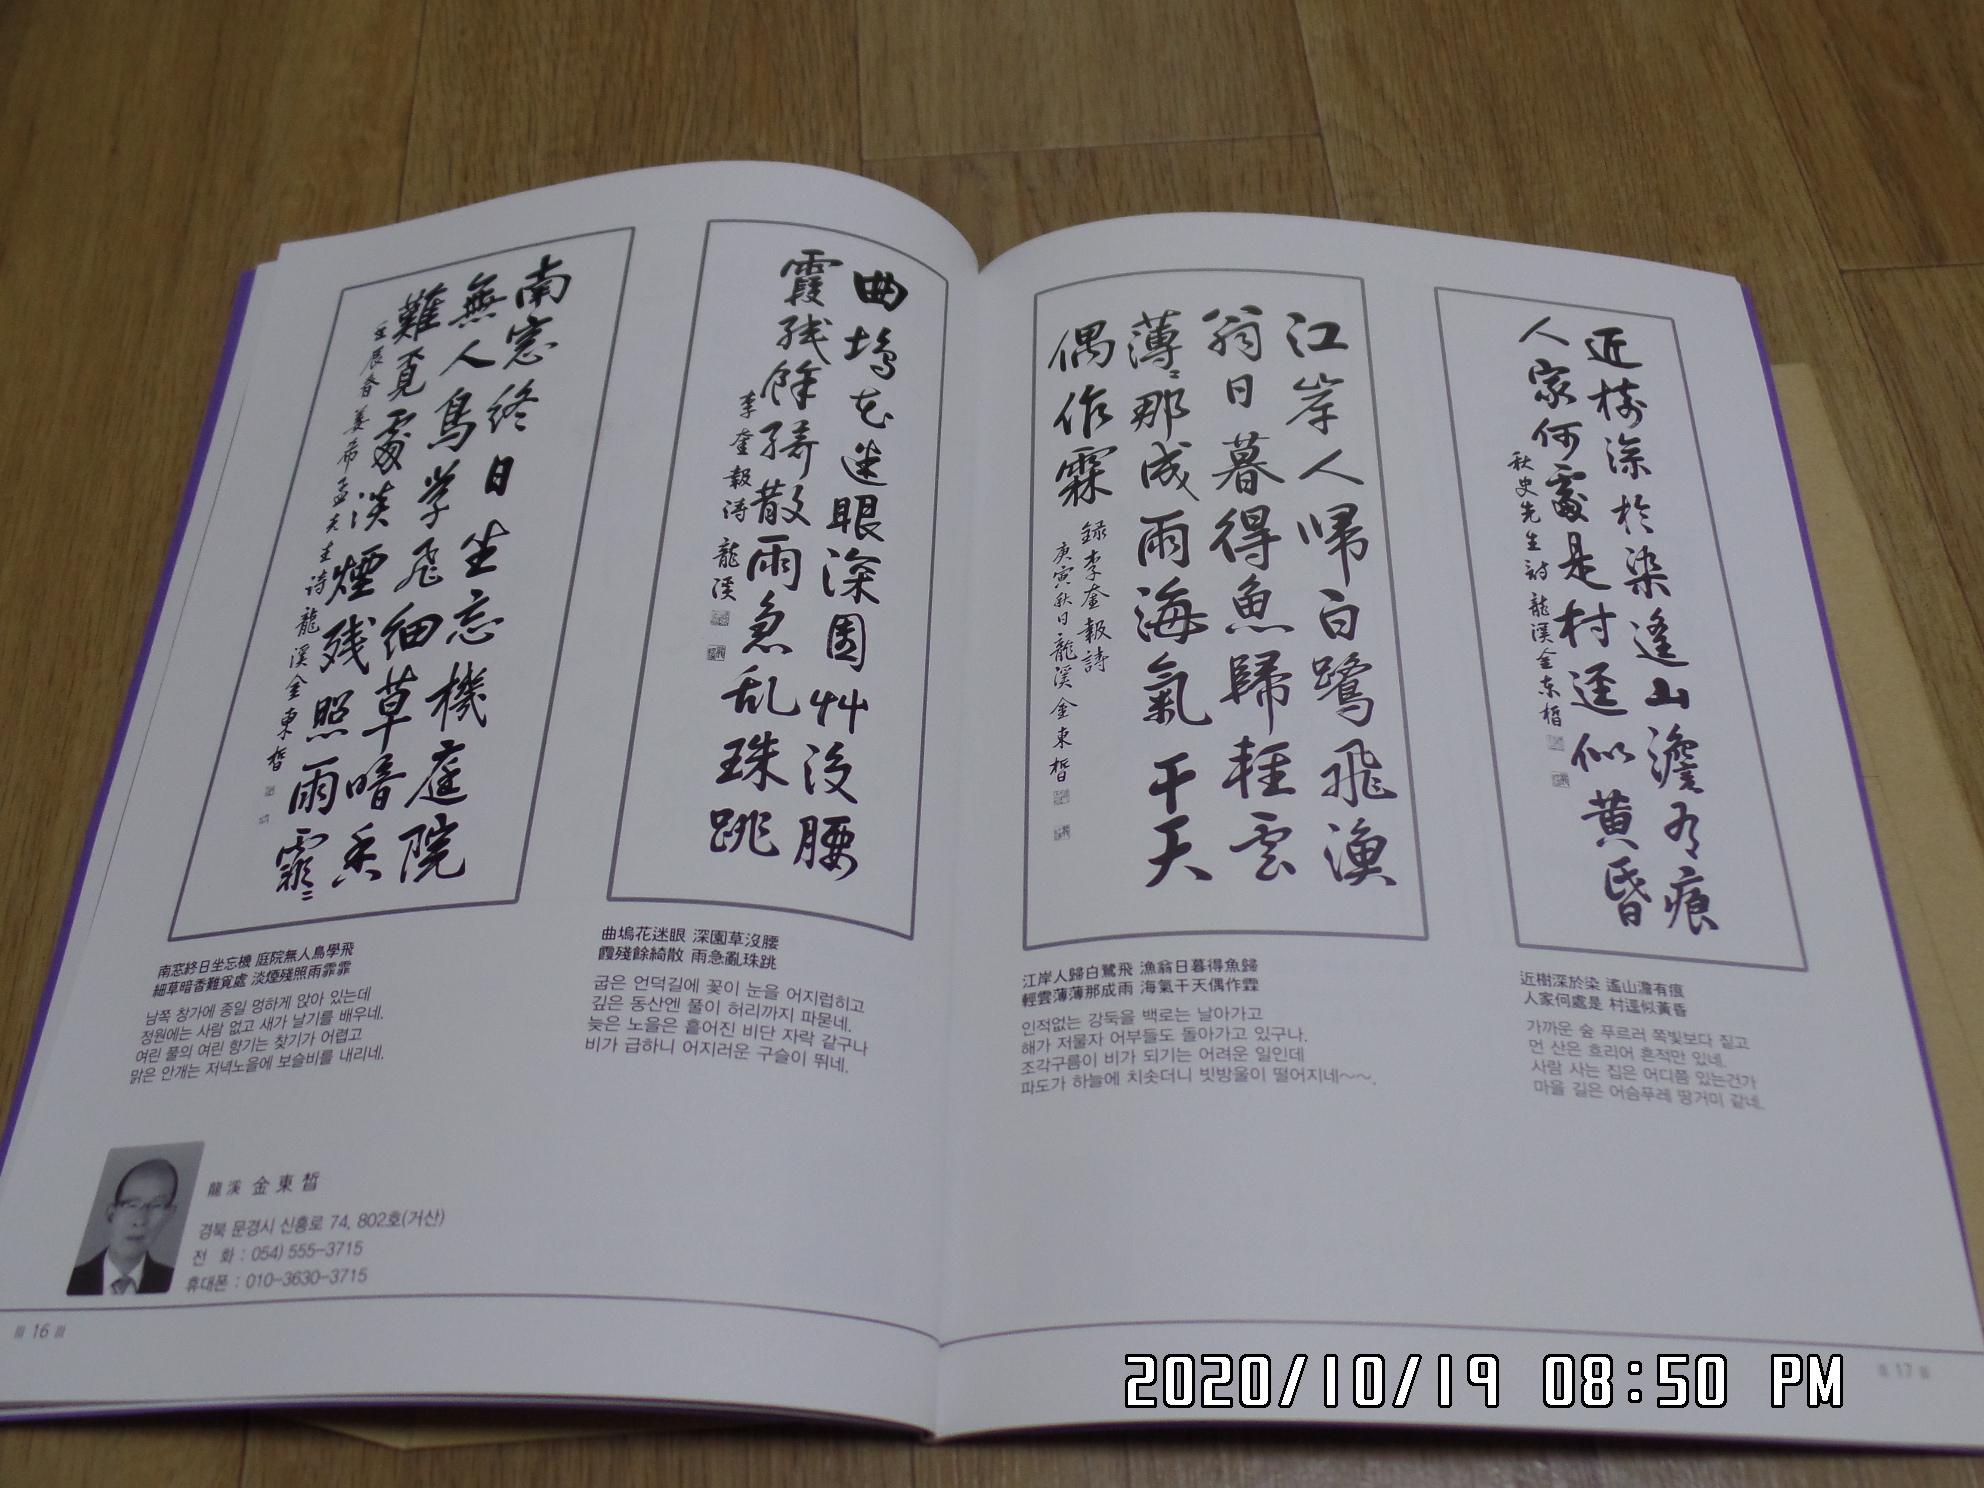 南窓終日坐忘機庭院
無人鳥学飛細草暗香
難覓處淡煙残照雨霏〻
壬辰春 姜希孟先生詩 龍溪 金東晳
曲塢花迷眼深園艸沒腰
霞残餘綺散雨急乱珠跳
李奎報詩 龍溪
南窓終日坐忘機 庭院無人鳥學飛
細草暗香難覓處 淡煙殘照雨霏霏
남쪽 창가에 종일 멍하게 앉아 있는데
정원에는 사람 없고 새가 날기를 배우네.
여린 풀의 여린 향기는 찾기가 어렵고
맑은 안개는 저녁노을에 보슬비를 내리네.
曲塢花迷眼 深園草沒腰
霞殘餘綺散 雨急亂珠跳
굽은 언덕길에 꽃이 눈을 어지럽히고
깊은 동산엔 풀이 허리까지 파묻네.
늦은 노을은 흩어진 비단 자락 같구나
비가 급하니 어지러운 구슬이 뛰네.
龍溪 金東晳
경북 문경시 신흥로 74, 802호(거산)
전 화 : 054) 555-3715
휴대폰 : 010-3630-3715
16
江岸人帰白鷺飛漁
翁日暮得魚歸軽雲
薄〻那成雨海氣干天
偶作霖
録李奎報詩
庚寅秋日 龍溪 金東晳
近樹深於染遙山澹有痕
人家何處是村逕似黄昏
秋史先生詩 龍溪 金东晳
江岸人歸白鷺飛 漁翁日暮得魚歸
輕雲薄薄那成雨 海氣干天偶作霖
인적없는 강둑을 백로는 날아가고
해가 저물자 어부들도 돌아가고 있구나.
조각구름이 비가 되기는 어려운 일인데
파도가 하늘에 치솟더니 빗방울이 떨어지네~~.
近樹深於染 遙山澹有痕
人家何處是 村逕似黃昏
가까운 숲 푸르러 쪽빛보다 짙고
먼 산은 흐리어 흔적만 있네.
사람 사는 집은 어디쯤 있는건가
마을 길은 어슴푸레 땅거미 같네.
17
2020/10/19 08:50 PM